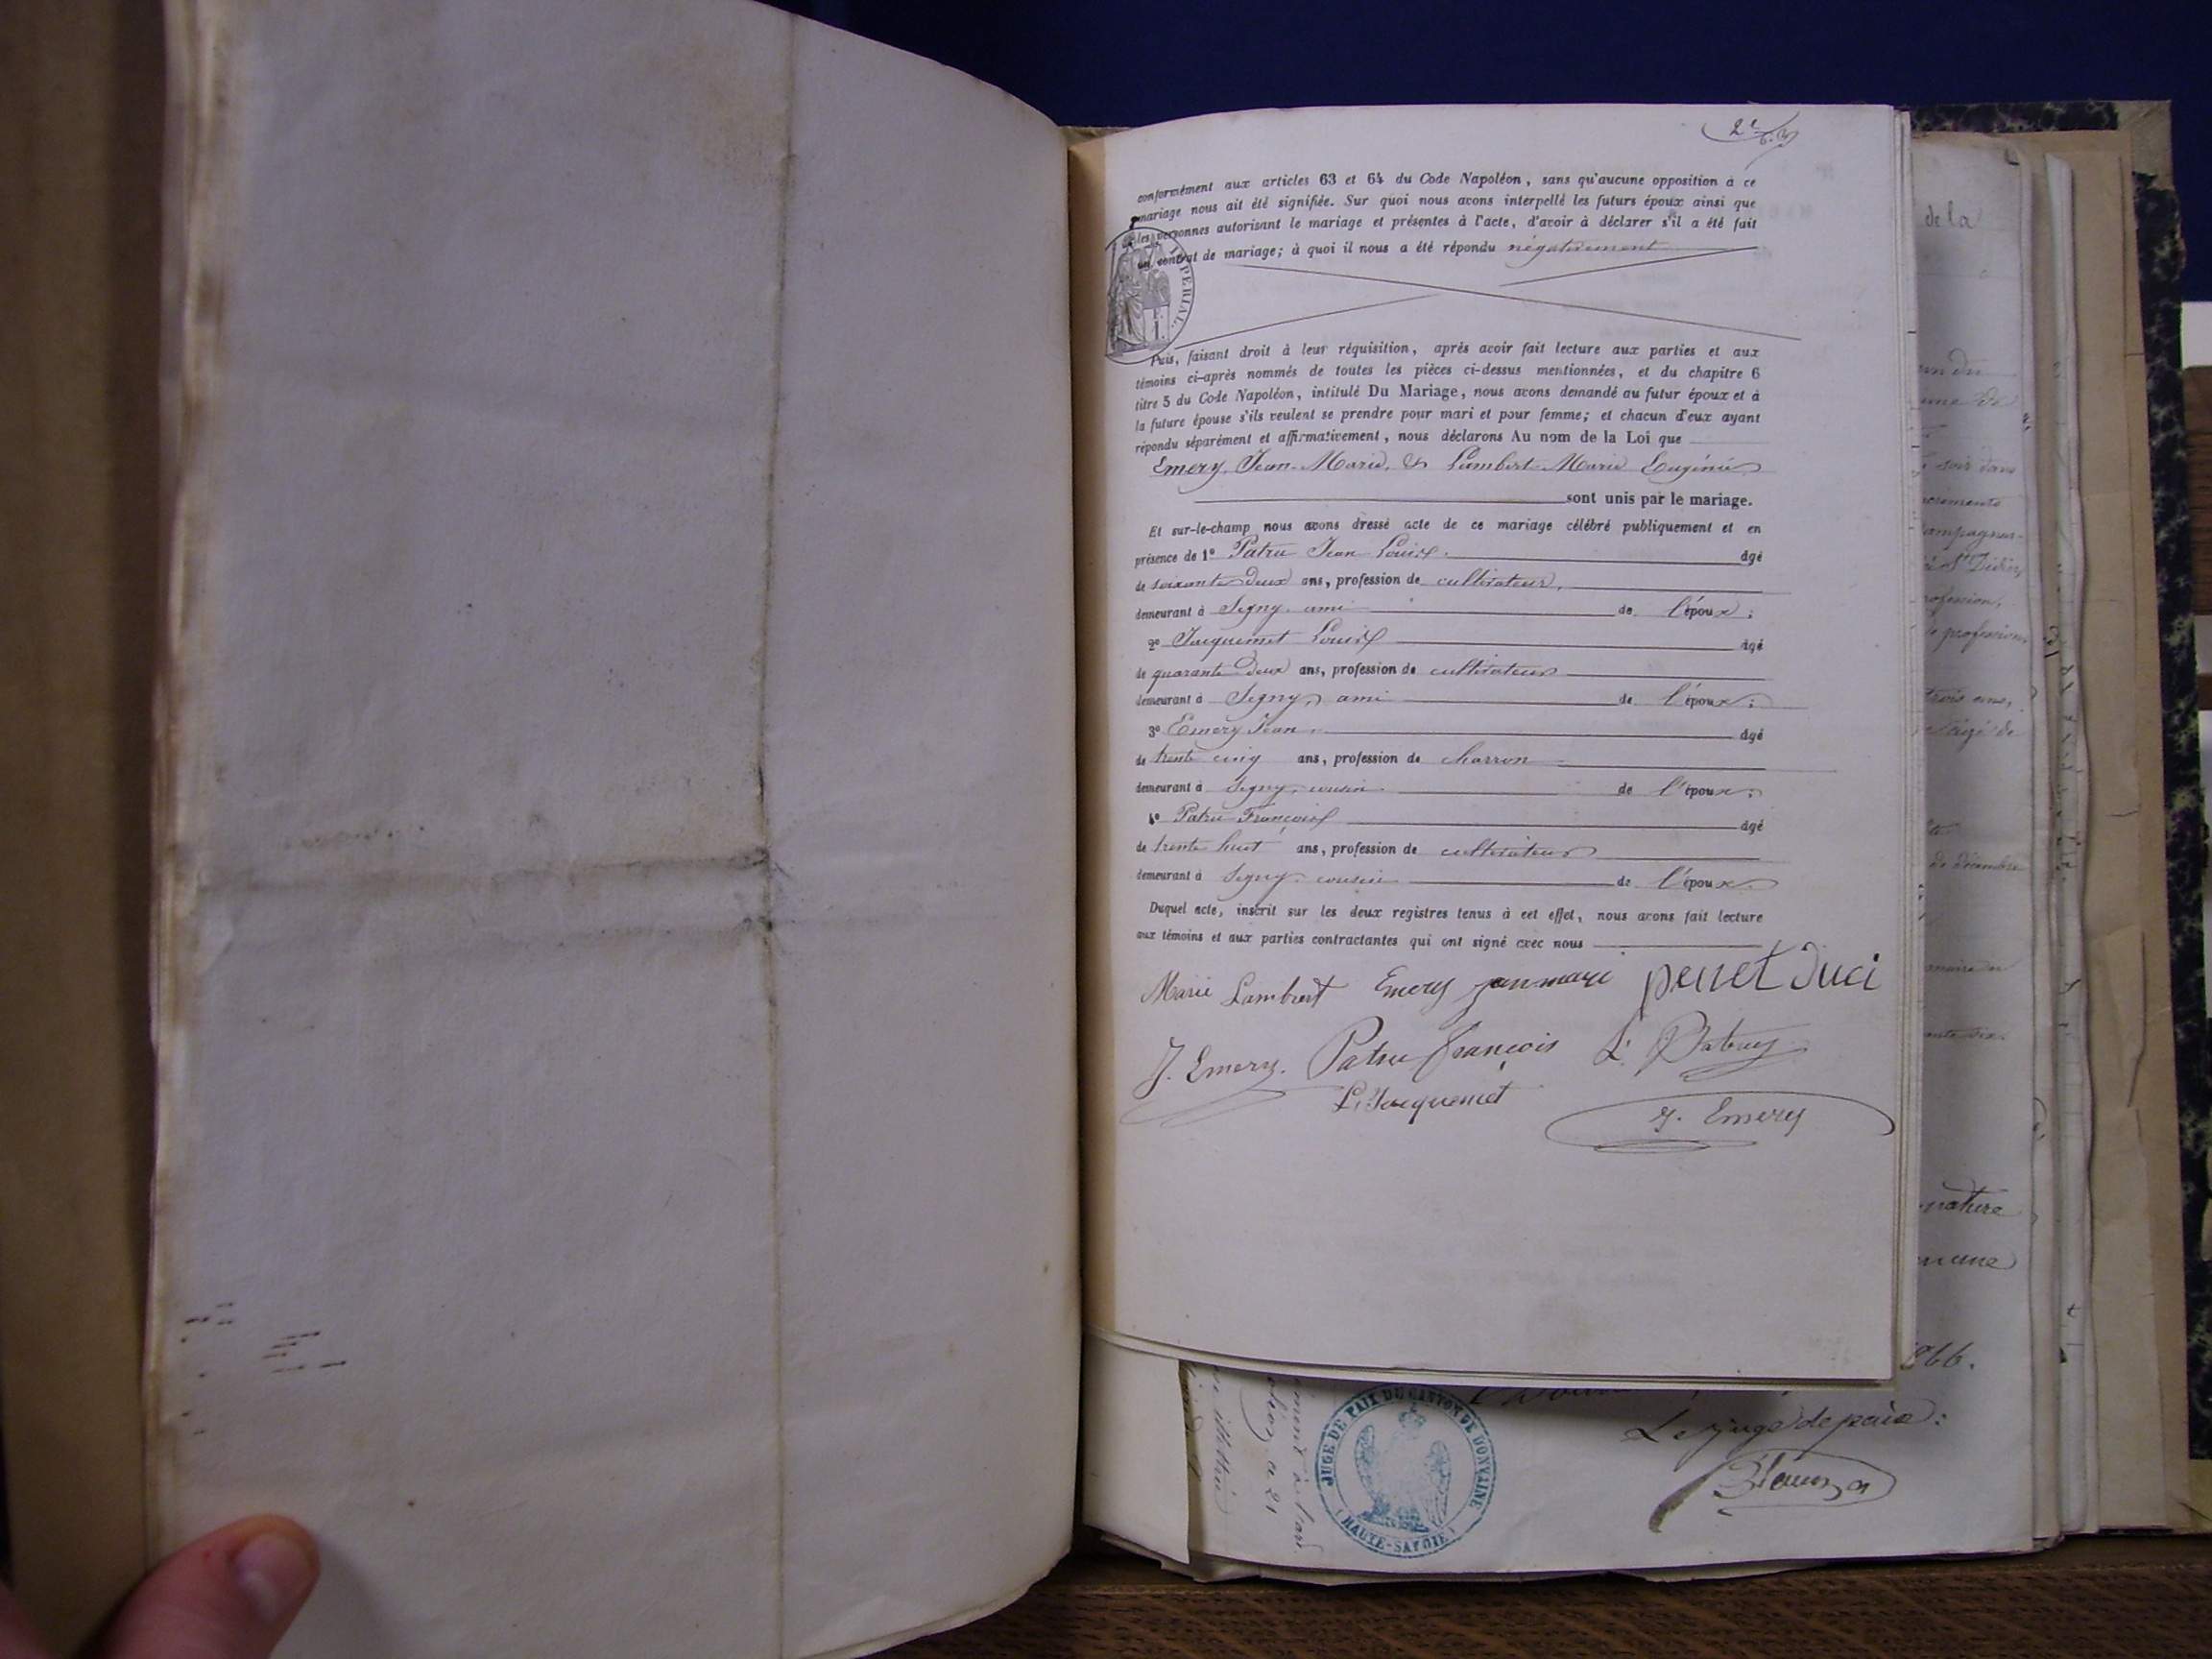 2e
conformément aux articles 63 et 64 du Code Napoléon, sans qu'aucune opposition à ce
mariage nous ait été signifiée. Sur quoi nous avons interpellé les futurs époux ainsi que
les personnes autorisant le mariage et présentes à l'acte, d'avoir à déclarer s'il a été fait
un contrat de mariage; à quoi il nous a été répondu négativement
IMPERIAL.
Puis, faisant droit à leur réquisition, après avoir fait lecture aux parties et aux
témoins ci-après nommés de toutes les pièces ci-dessus mentionnées, et du chapitre 6
titre 5 du Code Napoléon, intitulé Du Mariage, nous avons demandé au futur époux et à
la future épouse s'ils veulent se prendre pour mari et pour femme; et chacun d'eux ayant
répondu séparément et affirmativement, nous déclarons Au nom de la Loi que
Emery Jean-Marie, & Lambert Marie Eugénie
sont unis par le mariage.
Et sur-le-champ nous avons dressé acte de ce mariage célébré publiquement et en
présence de 1° Patru Jean Louis. âgé
de soixante deux ans, profession de cultivateur,
demeurant à Segny, ami de l'époux;
2° Jacquemet Louis âgé
de quarante deux ans, profession de cultivateur
demeurant à Segny, ami de l'époux;
3° Emery Jean, âgé
de trente cinq ans, profession de charron
demeurant à Segny, cousin de l'époux;
4° Patru François âgé
de trente huit ans, profession de cultivateur
demeurant à Segny, cousin de l'époux.
Duquel acte, inscrit sur les deux registres tenus à cet effet, nous avons fait lecture
aux témoins et aux parties contractantes qui ont signé avec nous
Marie Lambert Emery jean marie
J. Emery. Patru françois L. Patru
L. Jacquemet
J. Emery
de la
soir dans
St Didier
profession,
de profession
trois ans,
âgé de
de décembre
866.
Le juge de paix:
JUGE DE PAIX DU CANTON DE DOUVAINE
(HAUTE-SAVOIE)